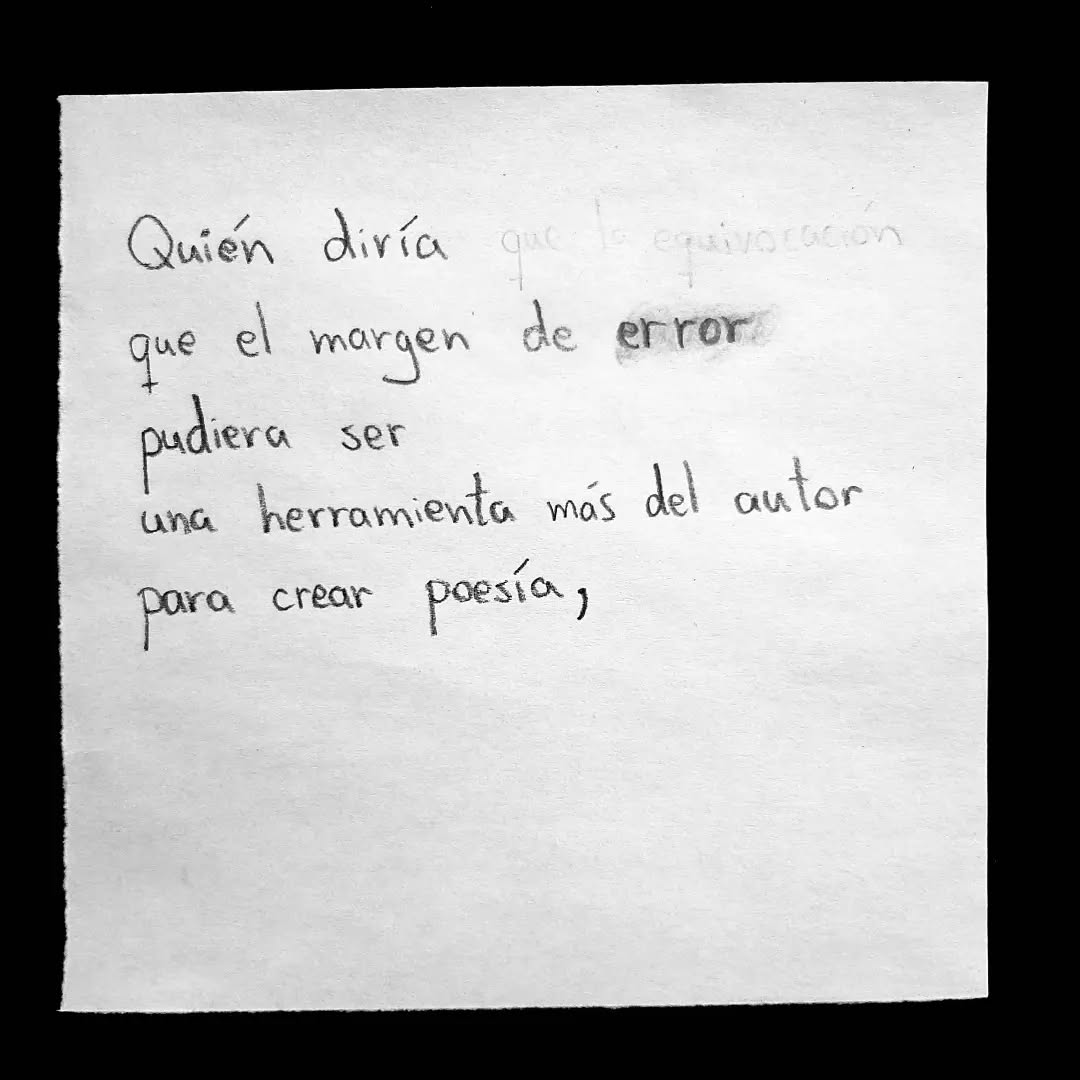 Quién diría que la equivocación
que el margen de error
pudiera ser
una herramienta más del autor
para crear poesía,